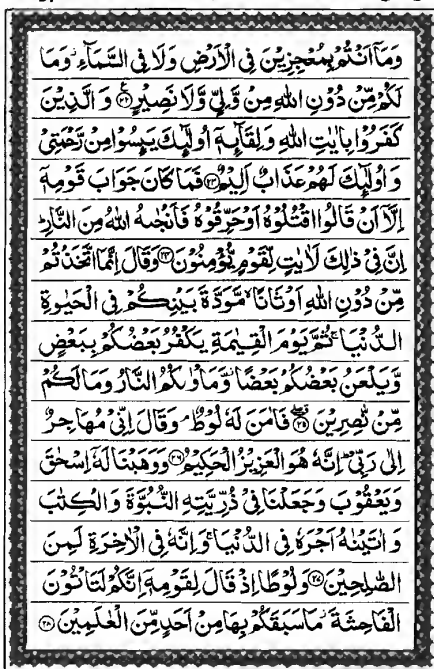 وَمَآ اَنْتُمْ بِمُعْجِزِيْنَ فِي الْاَرْضِ وَلَا فِي السَّمَآءِ وَمَا
لَكُمْ مِّنْ دُوْنِ اللّٰهِ مِنْ وَّلِيٍّ وَّلَا نَصِيْرٍ ۝۲۲ وَالَّذِيْنَ
كَفَرُوْا بِاٰيٰتِ اللّٰهِ وَلِقَآىِٕهٖٓ اُولٰٓىِٕكَ يَىِٕسُوْا مِنْ رَّحْمَتِيْ
وَاُولٰٓىِٕكَ لَهُمْ عَذَابٌ اَلِيْمٌ ۝۲۳ فَمَا كَانَ جَوَابَ قَوْمِهٖٓ
اِلَّآ اَنْ قَالُوا اقْتُلُوْهُ اَوْ حَرِّقُوْهُ فَاَنْجٰىهُ اللّٰهُ مِنَ النَّارِ ؕ
اِنَّ فِيْ ذٰلِكَ لَاٰيٰتٍ لِّقَوْمٍ يُّؤْمِنُوْنَ ۝۲۴ وَقَالَ اِنَّمَا اتَّخَذْتُمْ
مِّنْ دُوْنِ اللّٰهِ اَوْثَانًا ۙ مَّوَدَّةَ بَيْنِكُمْ فِي الْحَيٰوةِ
الدُّنْيَا ۚ ثُمَّ يَوْمَ الْقِيٰمَةِ يَكْفُرُ بَعْضُكُمْ بِبَعْضٍ
وَّيَلْعَنُ بَعْضُكُمْ بَعْضًا ؗ وَّمَاْوٰىكُمُ النَّارُ وَمَا لَكُمْ
مِّنْ نّٰصِرِيْنَ ۝۲۵ فَاٰمَنَ لَهٗ لُوْطٌ ۘ وَقَالَ اِنِّيْ مُهَاجِرٌ
اِلٰى رَبِّيْ ؕ اِنَّهٗ هُوَ الْعَزِيْزُ الْحَكِيْمُ ۝۲۶ وَوَهَبْنَا لَهٗٓ اِسْحٰقَ
وَيَعْقُوْبَ وَجَعَلْنَا فِيْ ذُرِّيَّتِهِ النُّبُوَّةَ وَالْكِتٰبَ
وَاٰتَيْنٰهُ اَجْرَهٗ فِي الدُّنْيَا ۚ وَاِنَّهٗ فِي الْاٰخِرَةِ لَمِنَ
الصّٰلِحِيْنَ ۝۲۷ وَلُوْطًا اِذْ قَالَ لِقَوْمِهٖٓ اِنَّكُمْ لَتَاْتُوْنَ
الْفَاحِشَةَ ؗ مَا سَبَقَكُمْ بِهَا مِنْ اَحَدٍ مِّنَ الْعٰلَمِيْنَ ۝۲۸